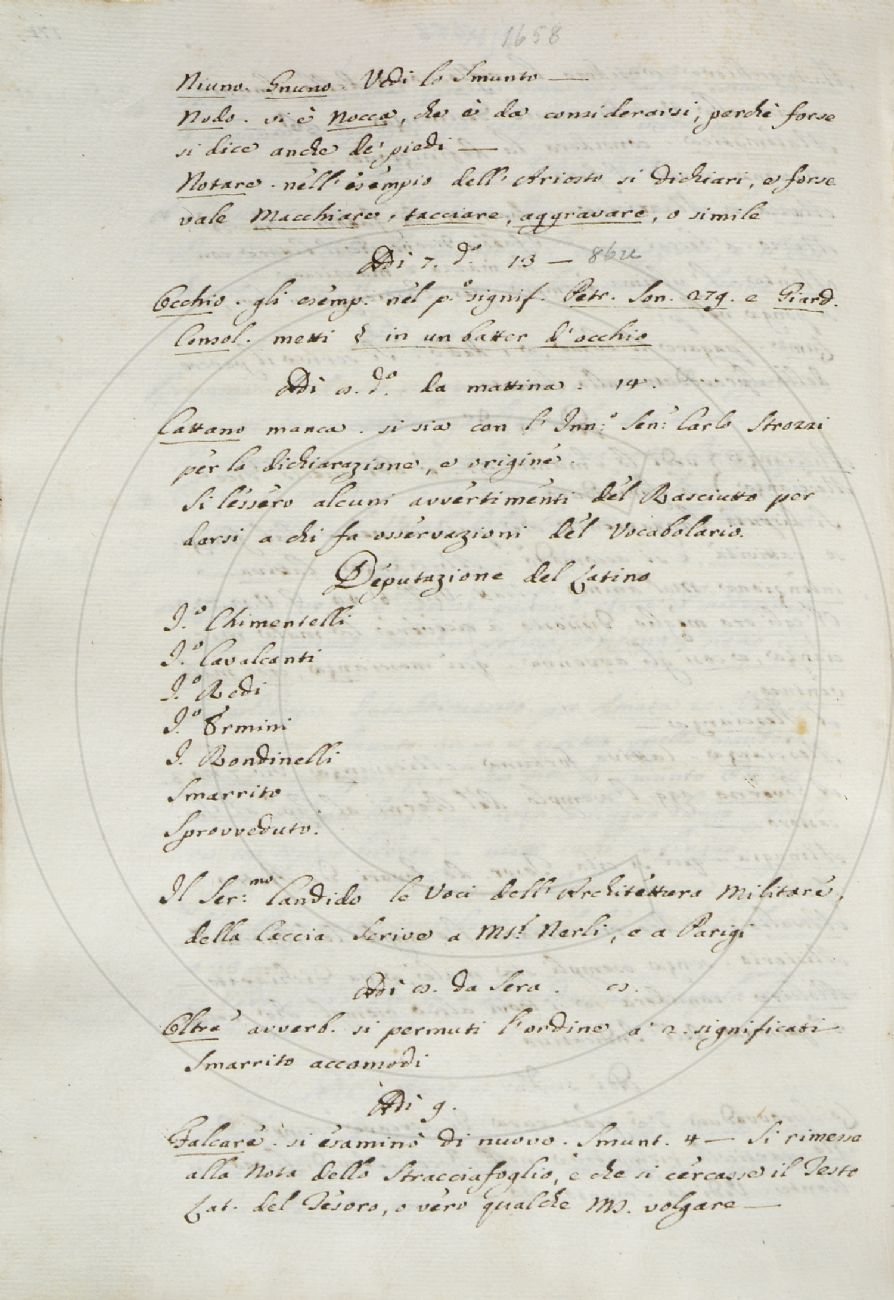 1658
Niuno. Gnuno. Vedi lo Smunto —
Nodo. si è Nocca, che è da considerarsi, perchè forse
si dice anche de' piedi —
Notare. nell'esempio dell'Ariosto si dichiari, e forse
vale Macchiare, tacciare, aggravare, o simile
Adi 7. d.o 13 —
Occhio. gli esemp. nel p.o signif. Petr. Son. 279. e Giard.
Consol. metti § in un batter d'occhio
Adi d.o da mattina. 14.
Cattano manca. si sia con l'Sen. Carlo Strozzi
per la dichiarazione, e origine.
Si lessero alcuni avvertimenti del Rasciutto per
darsi a chi fa osservazioni del Vocabolario.
Deputazione del Latino
J.o Chimentelli
J.o Cavalcanti
J.o Redi
J.o Ermini
J. Rondinelli
Smarrito
Sprovveduto.
Il Ser.mo Candido le Voci dell'Architettura Militare,
della Caccia Scrive a Ms.r Nerli, e a Parigi
Adi da Sera.
Oltre avverb. si permuti l'ordine a' 2. significati
Smarrito accomodi
Adi 9.
Falcare. si esaminò di nuovo. Smunt. 4 — Si rimesse
alla Nota dello Stracciafoglio, e che si cercasse il Testo
Lat. del Tesoro, o vero qualche MS. volgare —